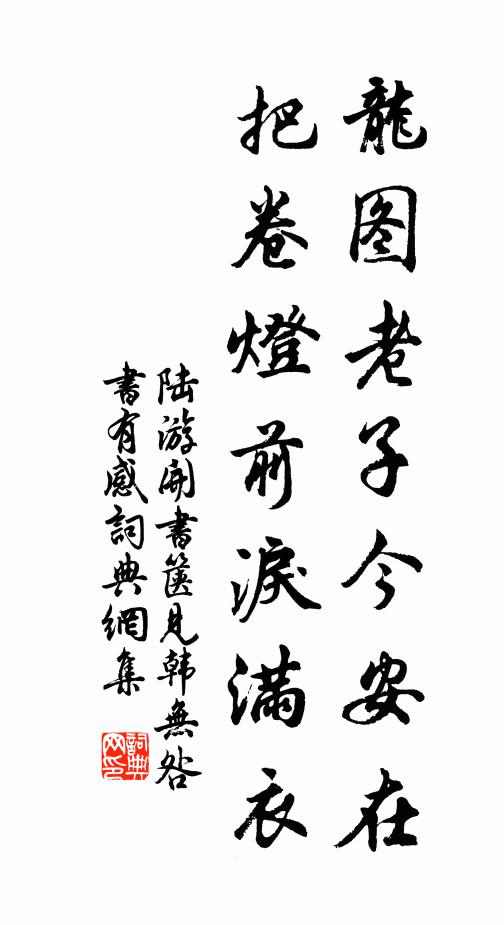 龍图老子今安在
把卷燈前淚满衣
陆游開書篋見韩無咎
書有感詞典網集
詞典
网印